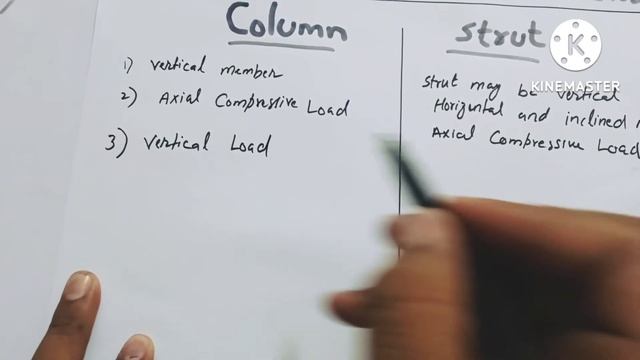 Column
1) vertical member
2) Axial Compressive Load
3) Vertical Load
Strut
KINEMASTER
Strut may be vertical
Horizontal and inclined
Axial Compressive Load